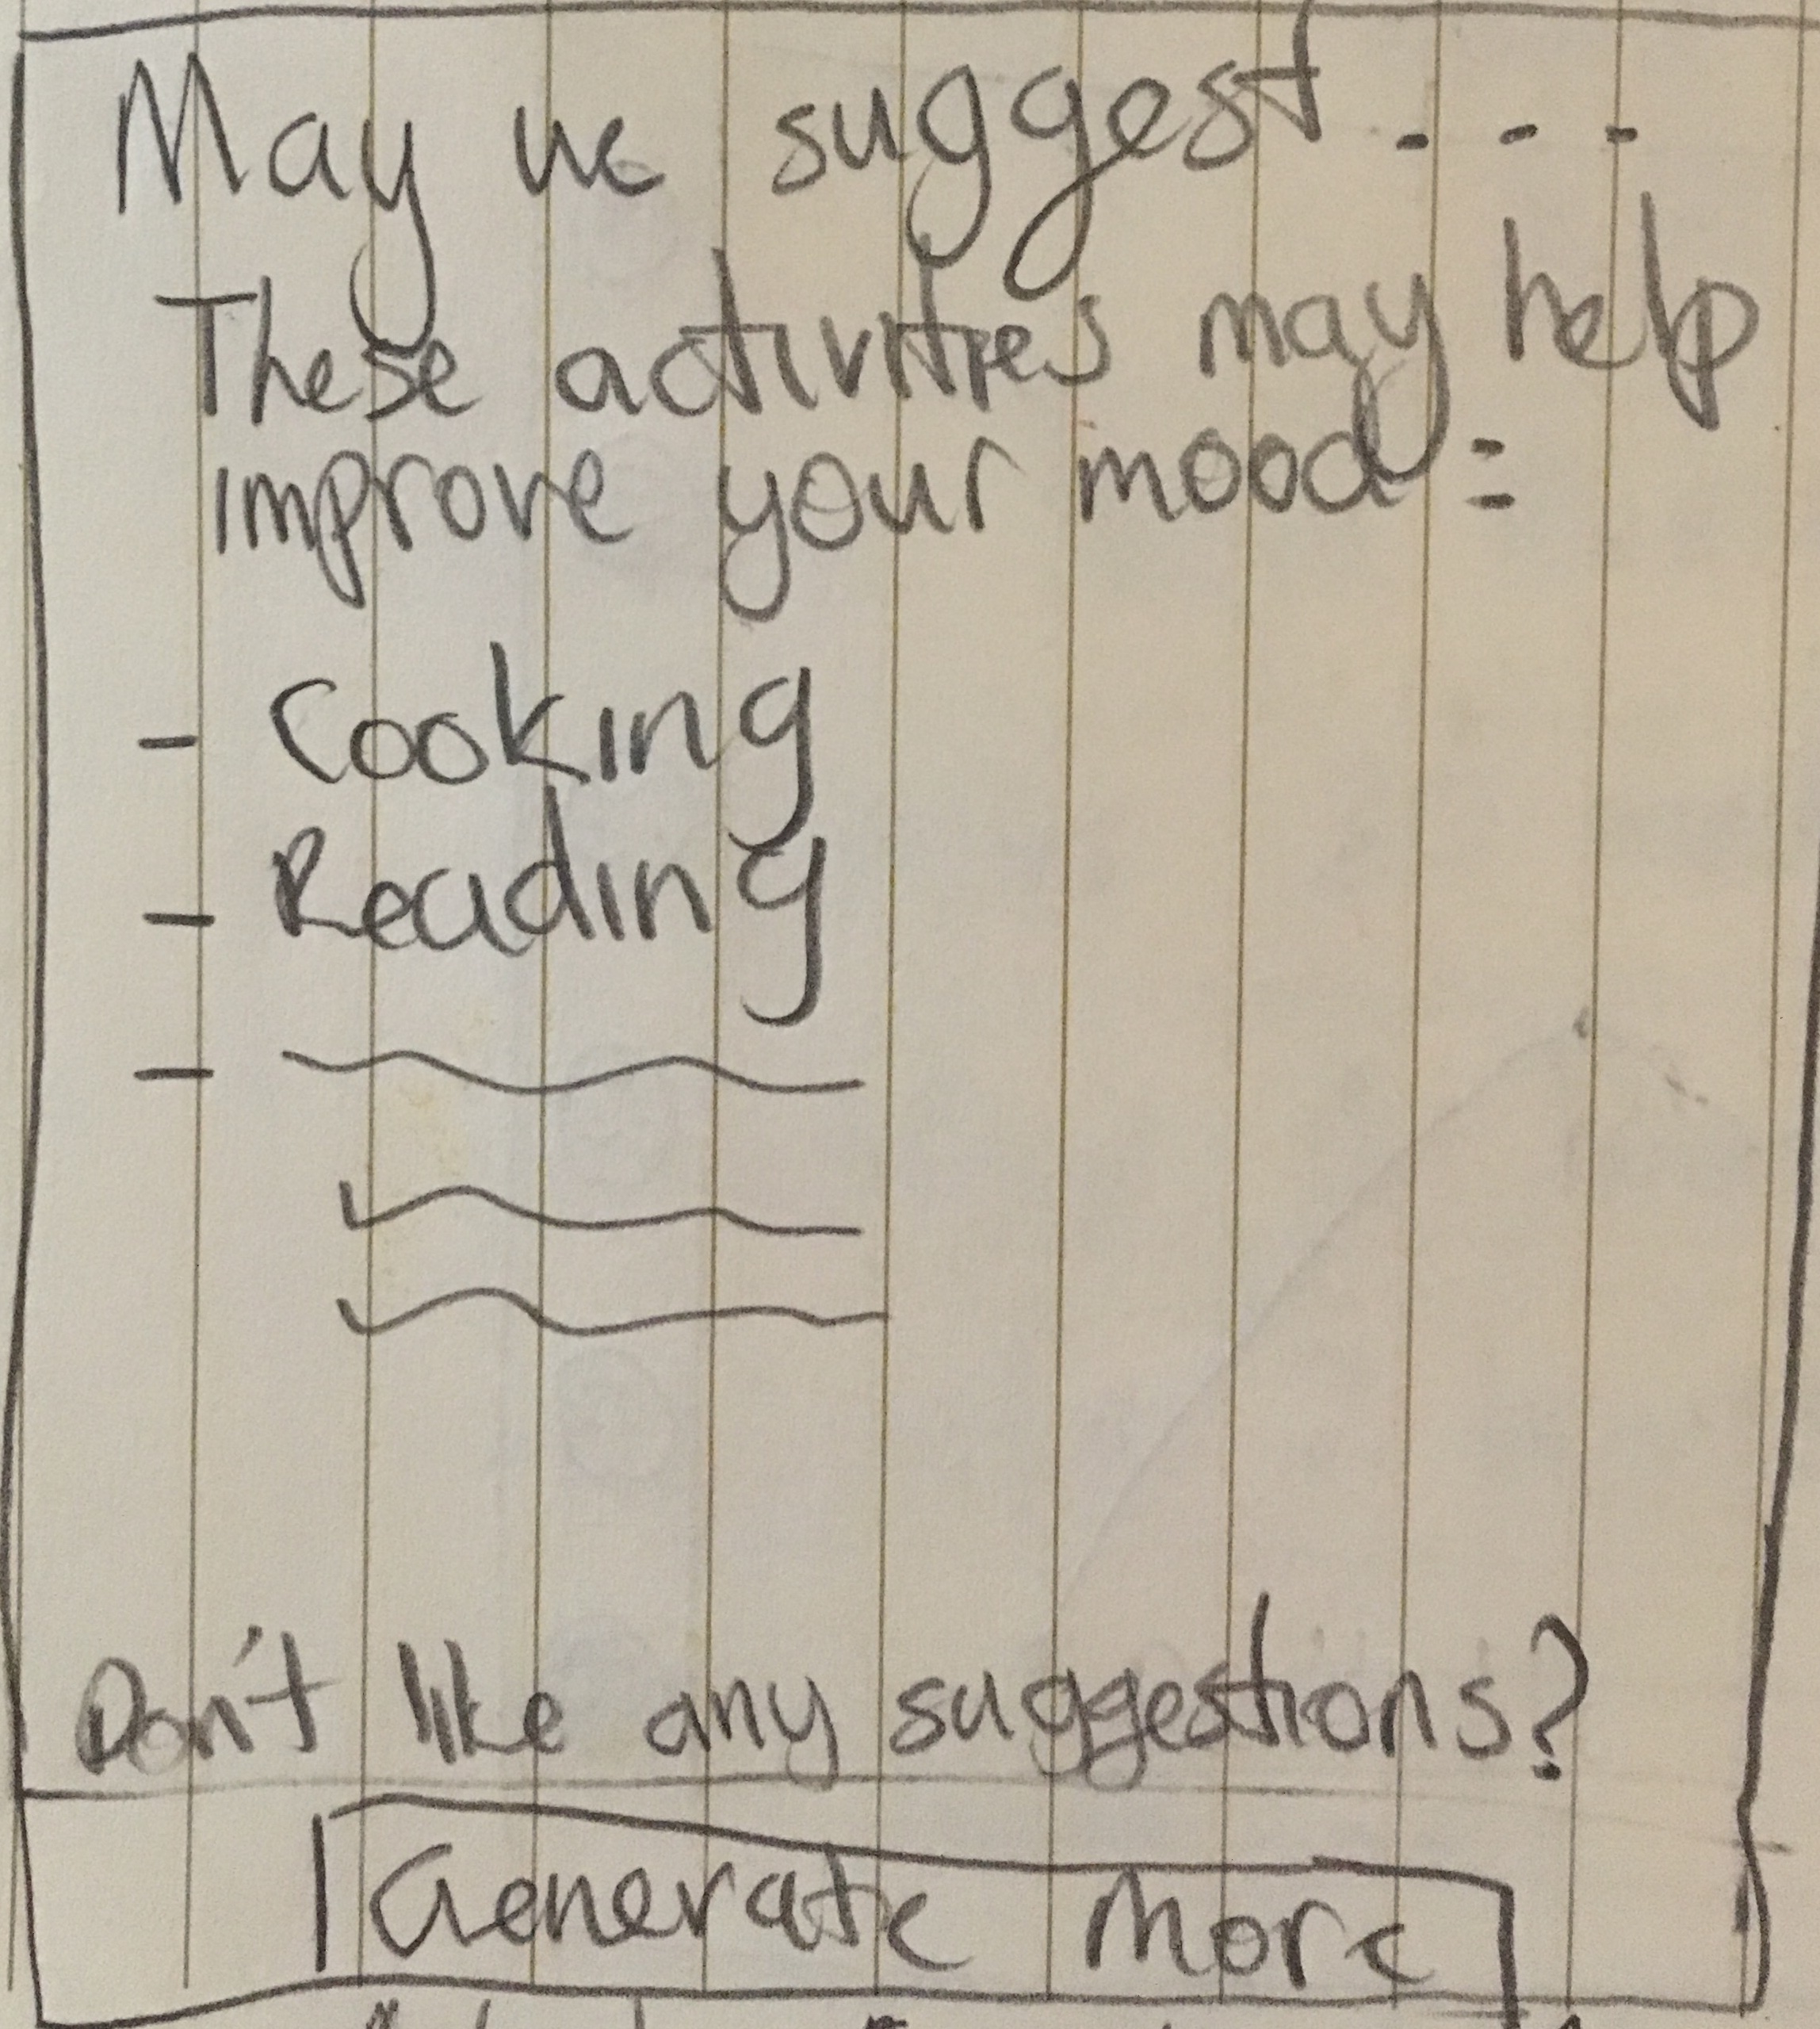 May we suggest...
These activities may help
improve your mood:
- Cooking
- Reading
-
Don't like any suggestions?
Generate More